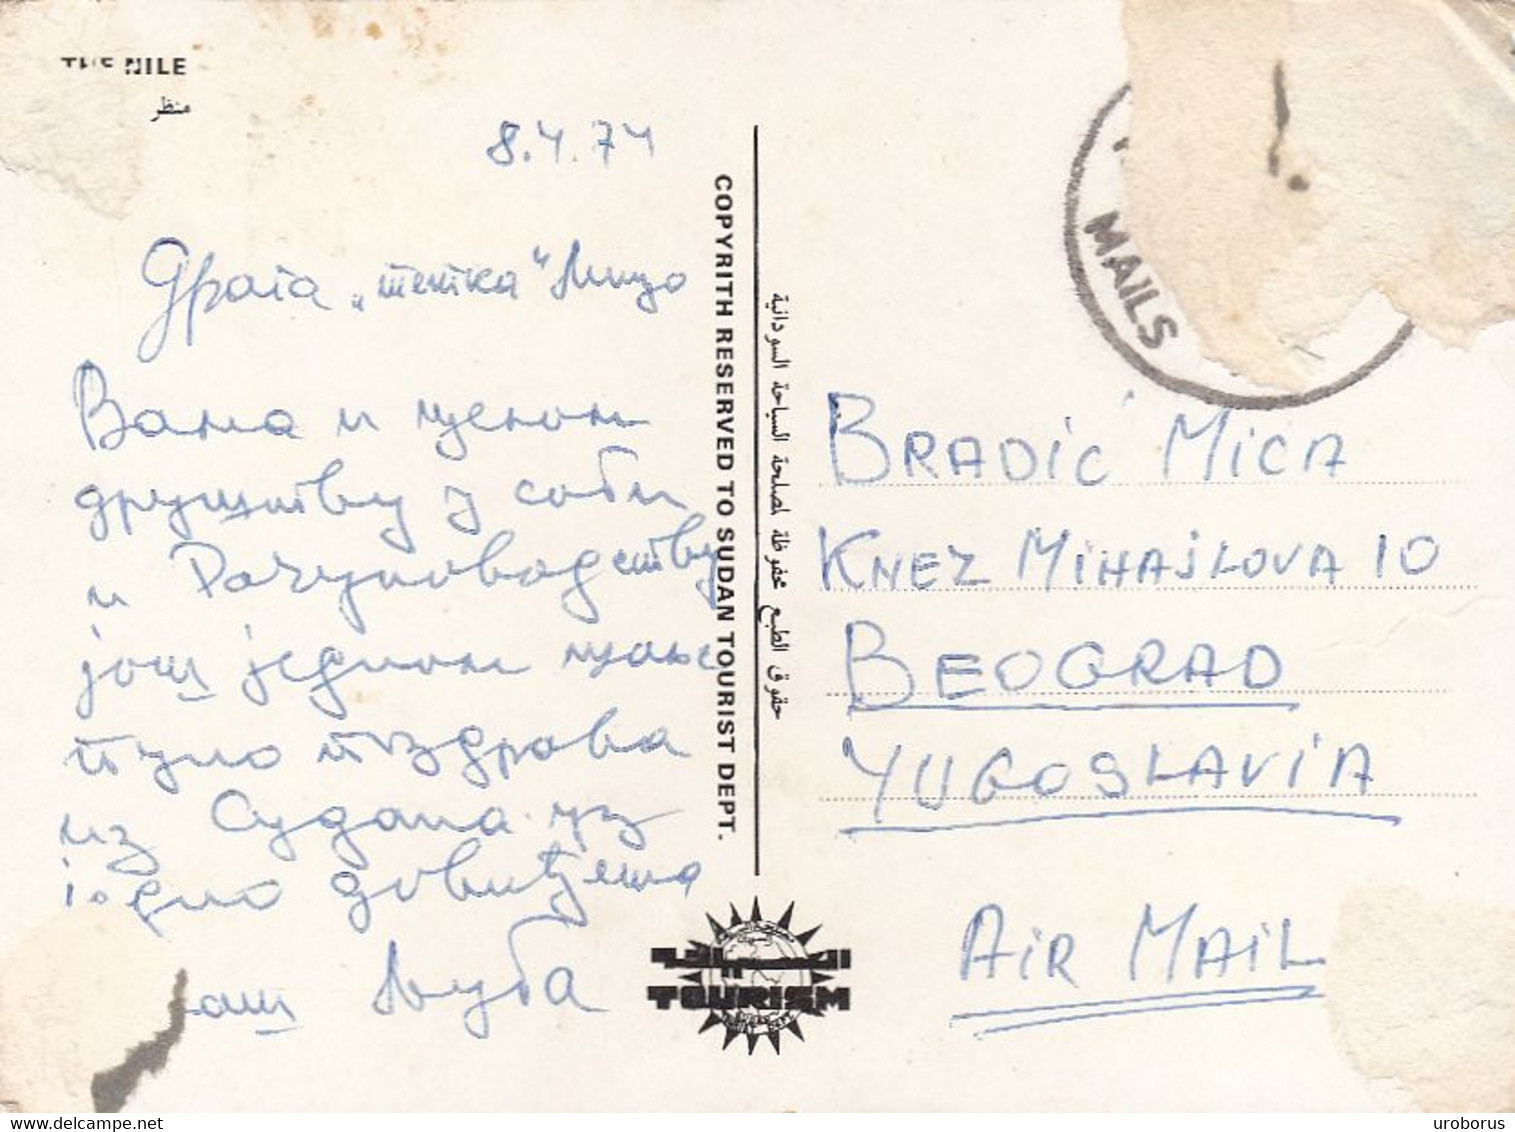 THE NILE
منظر
8.4.74
Драга „тетка“ Мицо
Вама и целом
друштву у соби
и Рачуноводству
још једном шаље
пуно поздрава
из Судана уз
једно довиђења
Ваш Љуба
COPYRITH RESERVED TO SUDAN TOURIST DEPT.
حقوق الطبع محفوظة لمصلحة السياحة السودانية
MAILS
BRADIĆ MICA
KNEZ MIHAJLOVA 10
BEOGRAD
YUGOSLAVIA
AIR MAIL
السياحة
TOURISM
uroborus